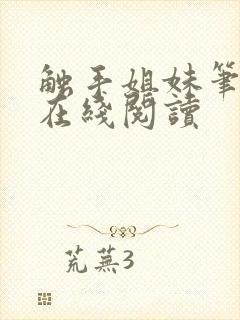 觸手姐妹筆
在綫閱讀
荒蕪3